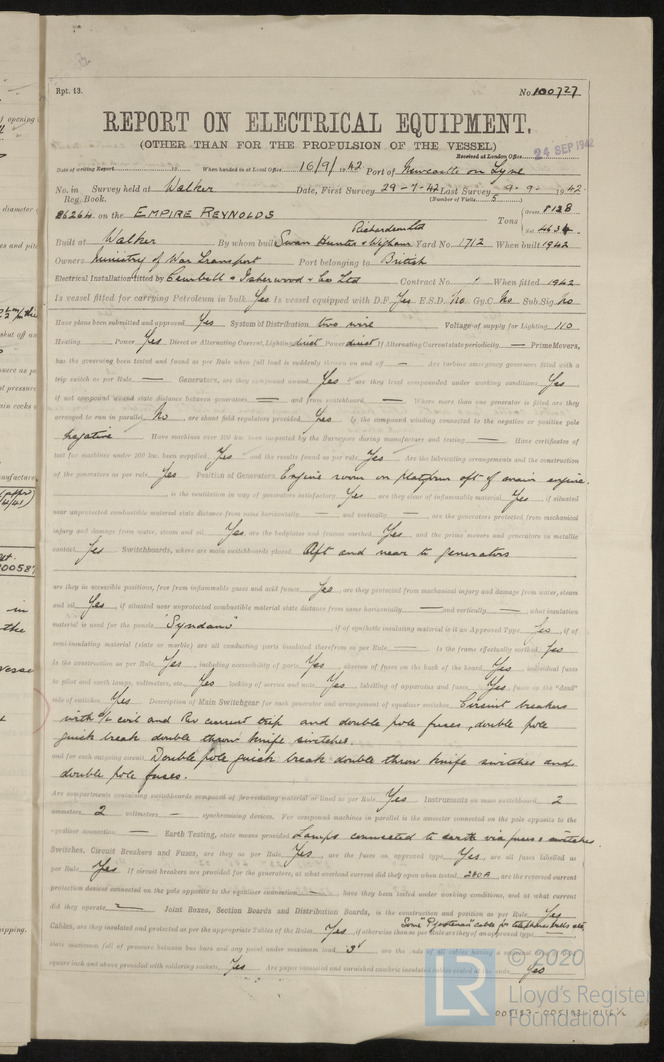 Rpt. 13.
No. 100727
REPORT ON ELECTRICAL EQUIPMENT.
(OTHER THAN FOR THE PROPULSION OF THE VESSEL)
Received at London Office 24 SEP 1942
Date of writing Report 19 When handed in at Local Office 16/9/1942 Port of Newcastle on Tyne
No. in Survey held at Walker Date, First Survey 29-7-42 Last Survey 9-9-1942
Reg. Book. (Number of Visits 5)
86264 on the EMPIRE REYNOLDS Tons Gross 8138
Net 4634
Richardson Ltd
Built at Walker By whom built Swan Hunter & Wigham Yard No. 1712 When built 1942
Owners Ministry of War Transport Port belonging to British
Electrical Installation fitted by Campbell & Isherwood & Co Ltd Contract No. When fitted 1942
Is vessel fitted for carrying Petroleum in bulk Yes Is vessel equipped with D.F. Yes E.S.D. No Gy.C. No Sub.Sig. No
Have plans been submitted and approved Yes System of Distribution two wire Voltage of supply for Lighting 110
Heating Power Yes Direct or Alternating Current, Lighting direct Power direct If Alternating Current state periodicity — Prime Movers,
has the governing been tested and found as per Rule when full load is suddenly thrown on and off — Are turbine emergency governors fitted with a
trip switch as per Rule — Generators, are they compound wound Yes are they level compounded under working conditions Yes
if not compound wound state distance between generators — and from switchboard — Where more than one generator is fitted are they
arranged to run in parallel No are shunt field regulators provided Yes Is the compound winding connected to the negative or positive pole
negative Have machines over 100 kw. been inspected by the Surveyors during manufacture and testing — Have certificates of
test for machines under 100 kw. been supplied Yes and the results found as per rule Yes Are the lubricating arrangements and the construction
of the generators as per rule Yes Position of Generators Engine room on platform aft of main engine.
is the ventilation in way of generators satisfactory Yes are they clear of inflammable material Yes if situated
near unprotected combustible material state distance from same horizontally — and vertically — are the generators protected from mechanical
injury and damage from water, steam and oil Yes are the bedplates and frames earthed Yes and the prime movers and generators in metallic
contact Yes Switchboards, where are main switchboards placed Aft and near to generators
are they in accessible positions, free from inflammable gases and acid fumes Yes are they protected from mechanical injury and damage from water, steam
and oil Yes if situated near unprotected combustible material state distance from same horizontally — and vertically — what insulation
material is used for the panels "Syndanio" if of synthetic insulating material is it an Approved Type Yes if of
semi-insulating material (slate or marble) are all conducting parts insulated therefrom as per Rule — Is the frame effectually earthed Yes
Is the construction as per Rule Yes including accessibility of parts Yes absence of fuses on the back of the board Yes individual fuses
to pilot and earth lamps, voltmeters, etc. Yes locking of screws and nuts Yes labelling of apparatus and fuses Yes fuses on the "dead"
side of switches Yes Description of Main Switchgear for each generator and arrangement of equaliser switches Circuit breakers
with o/c coil and Rev current trip and double pole fuses, double pole
quick break double throw knife switches.
and for each outgoing circuit Double pole quick break double throw knife switches and
double pole fuses.
Are compartments containing switchboards composed of fire-resisting material or lined as per Rule Yes Instruments on main switchboard 2
ammeters 2 voltmeters — synchronising devices. For compound machines in parallel is the ammeter connected on the pole opposite to the
equaliser connection — Earth Testing, state means provided Lamps connected to earth via fuses & switches.
Switches, Circuit Breakers and Fuses, are they as per Rule Yes are the fuses an approved type Yes are all fuses labelled as
per Rule Yes If circuit breakers are provided for the generators, at what overload current did they open when tested 280A are the reversed current
protection devices connected on the pole opposite to the equaliser connection — have they been tested under working conditions, and at what current
did they operate — Joint Boxes, Section Boards and Distribution Boards, is the construction and position as per Rule Yes
Cables, are they insulated and protected as per the appropriate Tables of the Rules Yes if otherwise than as per Rule are they of an approved type Some "Pyrotenax" cable for telephones bells etc.
state maximum fall of pressure between bus bars and any point under maximum load 3v are the ends of all cables having a sectional area of
square inch and above provided with soldering sockets Yes Are paper insulated and varnished cambric insulated cables sealed at the ends Yes
© 2020
LR
Lloyd's Register
Foundation